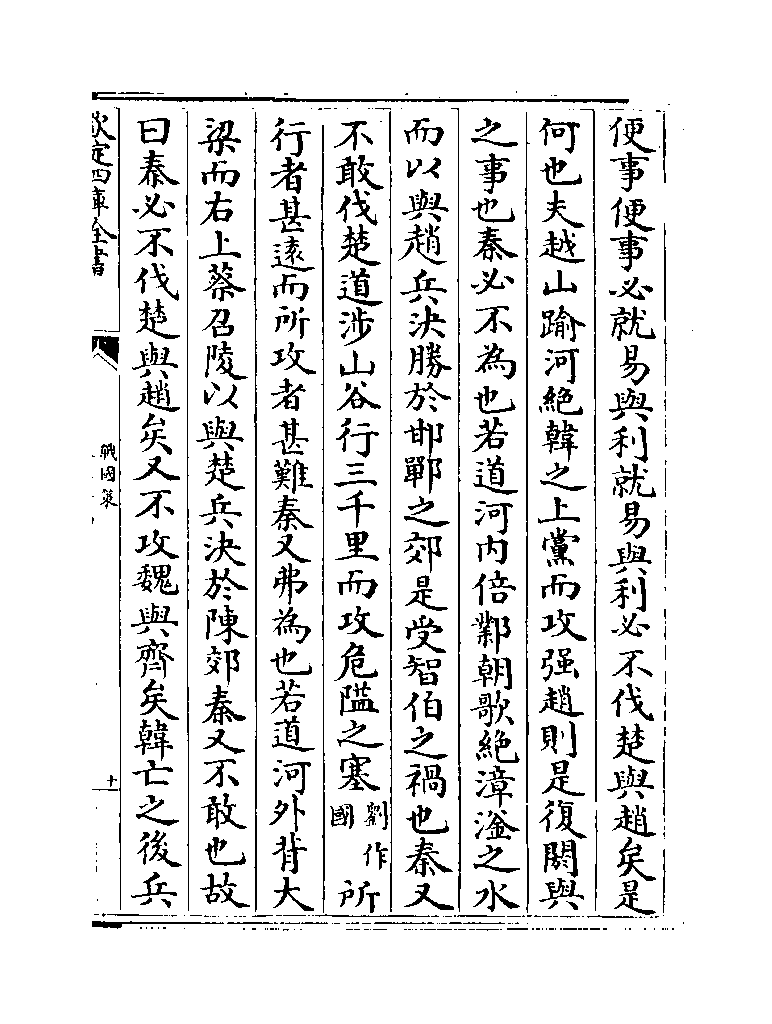 便事便事必就易與利就易與利必不伐楚與趙矣是
何也夫越山踰河絶韓之上黨而攻强趙則是復閼與
之事也秦必不為也若道河内倍鄴朝歌絶漳滏之水
而以與趙兵決勝於邯鄲之郊是受智伯之禍也秦又
不敢伐楚道涉山谷行三千里而攻危隘之塞劉作國所
行者甚逺而所攻者甚難秦又弗為也若道河外背大
梁而右上蔡召陵以與楚兵決於陳郊秦又不敢也故
曰秦必不伐楚與趙矣又不攻魏與齊矣韓亡之後兵
欽定四庫全書
戰國策
十